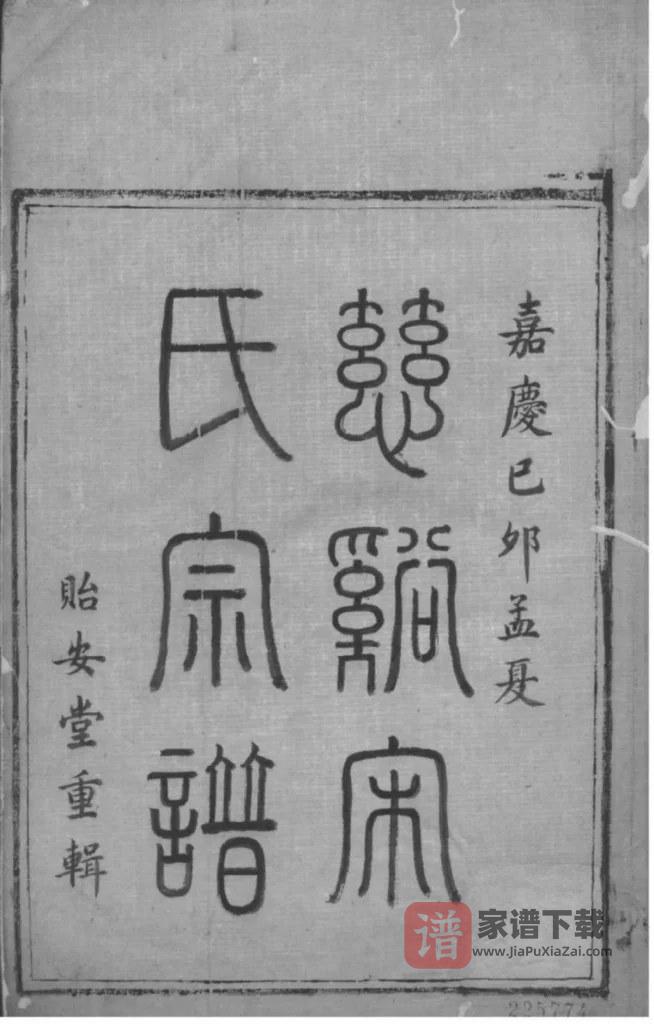 嘉慶己卯孟夏
慈谿宋
氏宗譜
貽安堂重輯
谱 家谱下载
www.JiaPuXiaZai.com
225774